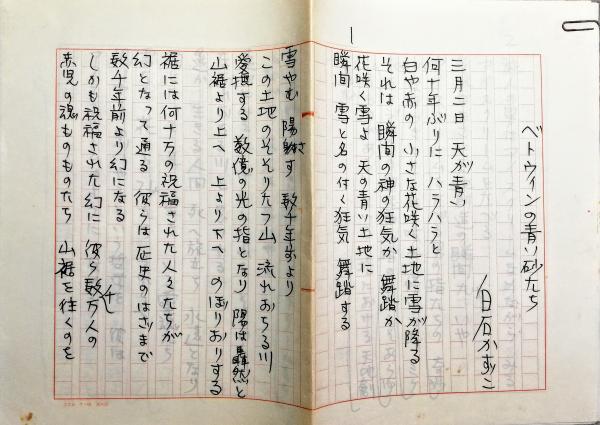 ベトウィンの青い砂たち
白石かずこ
1
三月二日 天が青い
何十年ぶりに ハラハラと
白や赤の 小さな花咲く土地に雪が降る
それは 瞬間の神の狂気か 舞踏か
花咲く雪よ 天の青い土地に
瞬間 雪と名の付く狂気 舞踏する
雪やむ 陽射す 数千年前より
この土地のそそりたつ山 流れおちる川
愛撫する 数億の光の指となり 陽は轟然と
山裾より上へ 上より下へ のぼりおりする
裾には何十万の祝福された人々たちが
幻となって通る 彼らは歴史のはざまで
数千年前より幻になる
しかも祝福された幻に 彼ら数千万人の
赤児の魂ものものたち 山裾を往くのを